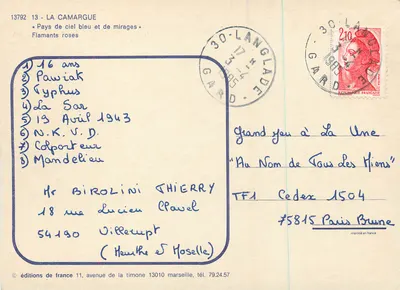 13792 13 - LA CAMARGUE
« Pays de ciel bleu et de mirages »
Flamants roses
30-LANGLADE
17 H
3-4
1985
GARD
30-LANGLADE
3-4
1985
GARD
2,10
1) 16 ans
2) Pawiak
3) Typhus
4) La Sar
5) 19 Avril 1943
6) N.K.V.D.
7) Colporteur
8) Mandelieu
Mr BIROLINI THIERRY
18 rue Lucien Clavel
54190 Villerupt
( Meurthe et Moselle)
Grand jeu à La Une
"Au Nom de Tous Les Miens"
TF1 Cedex 1504
75815 Paris Brune
© éditions de france 11, avenue de la timone 13010 marseille, tél. 79.24.57